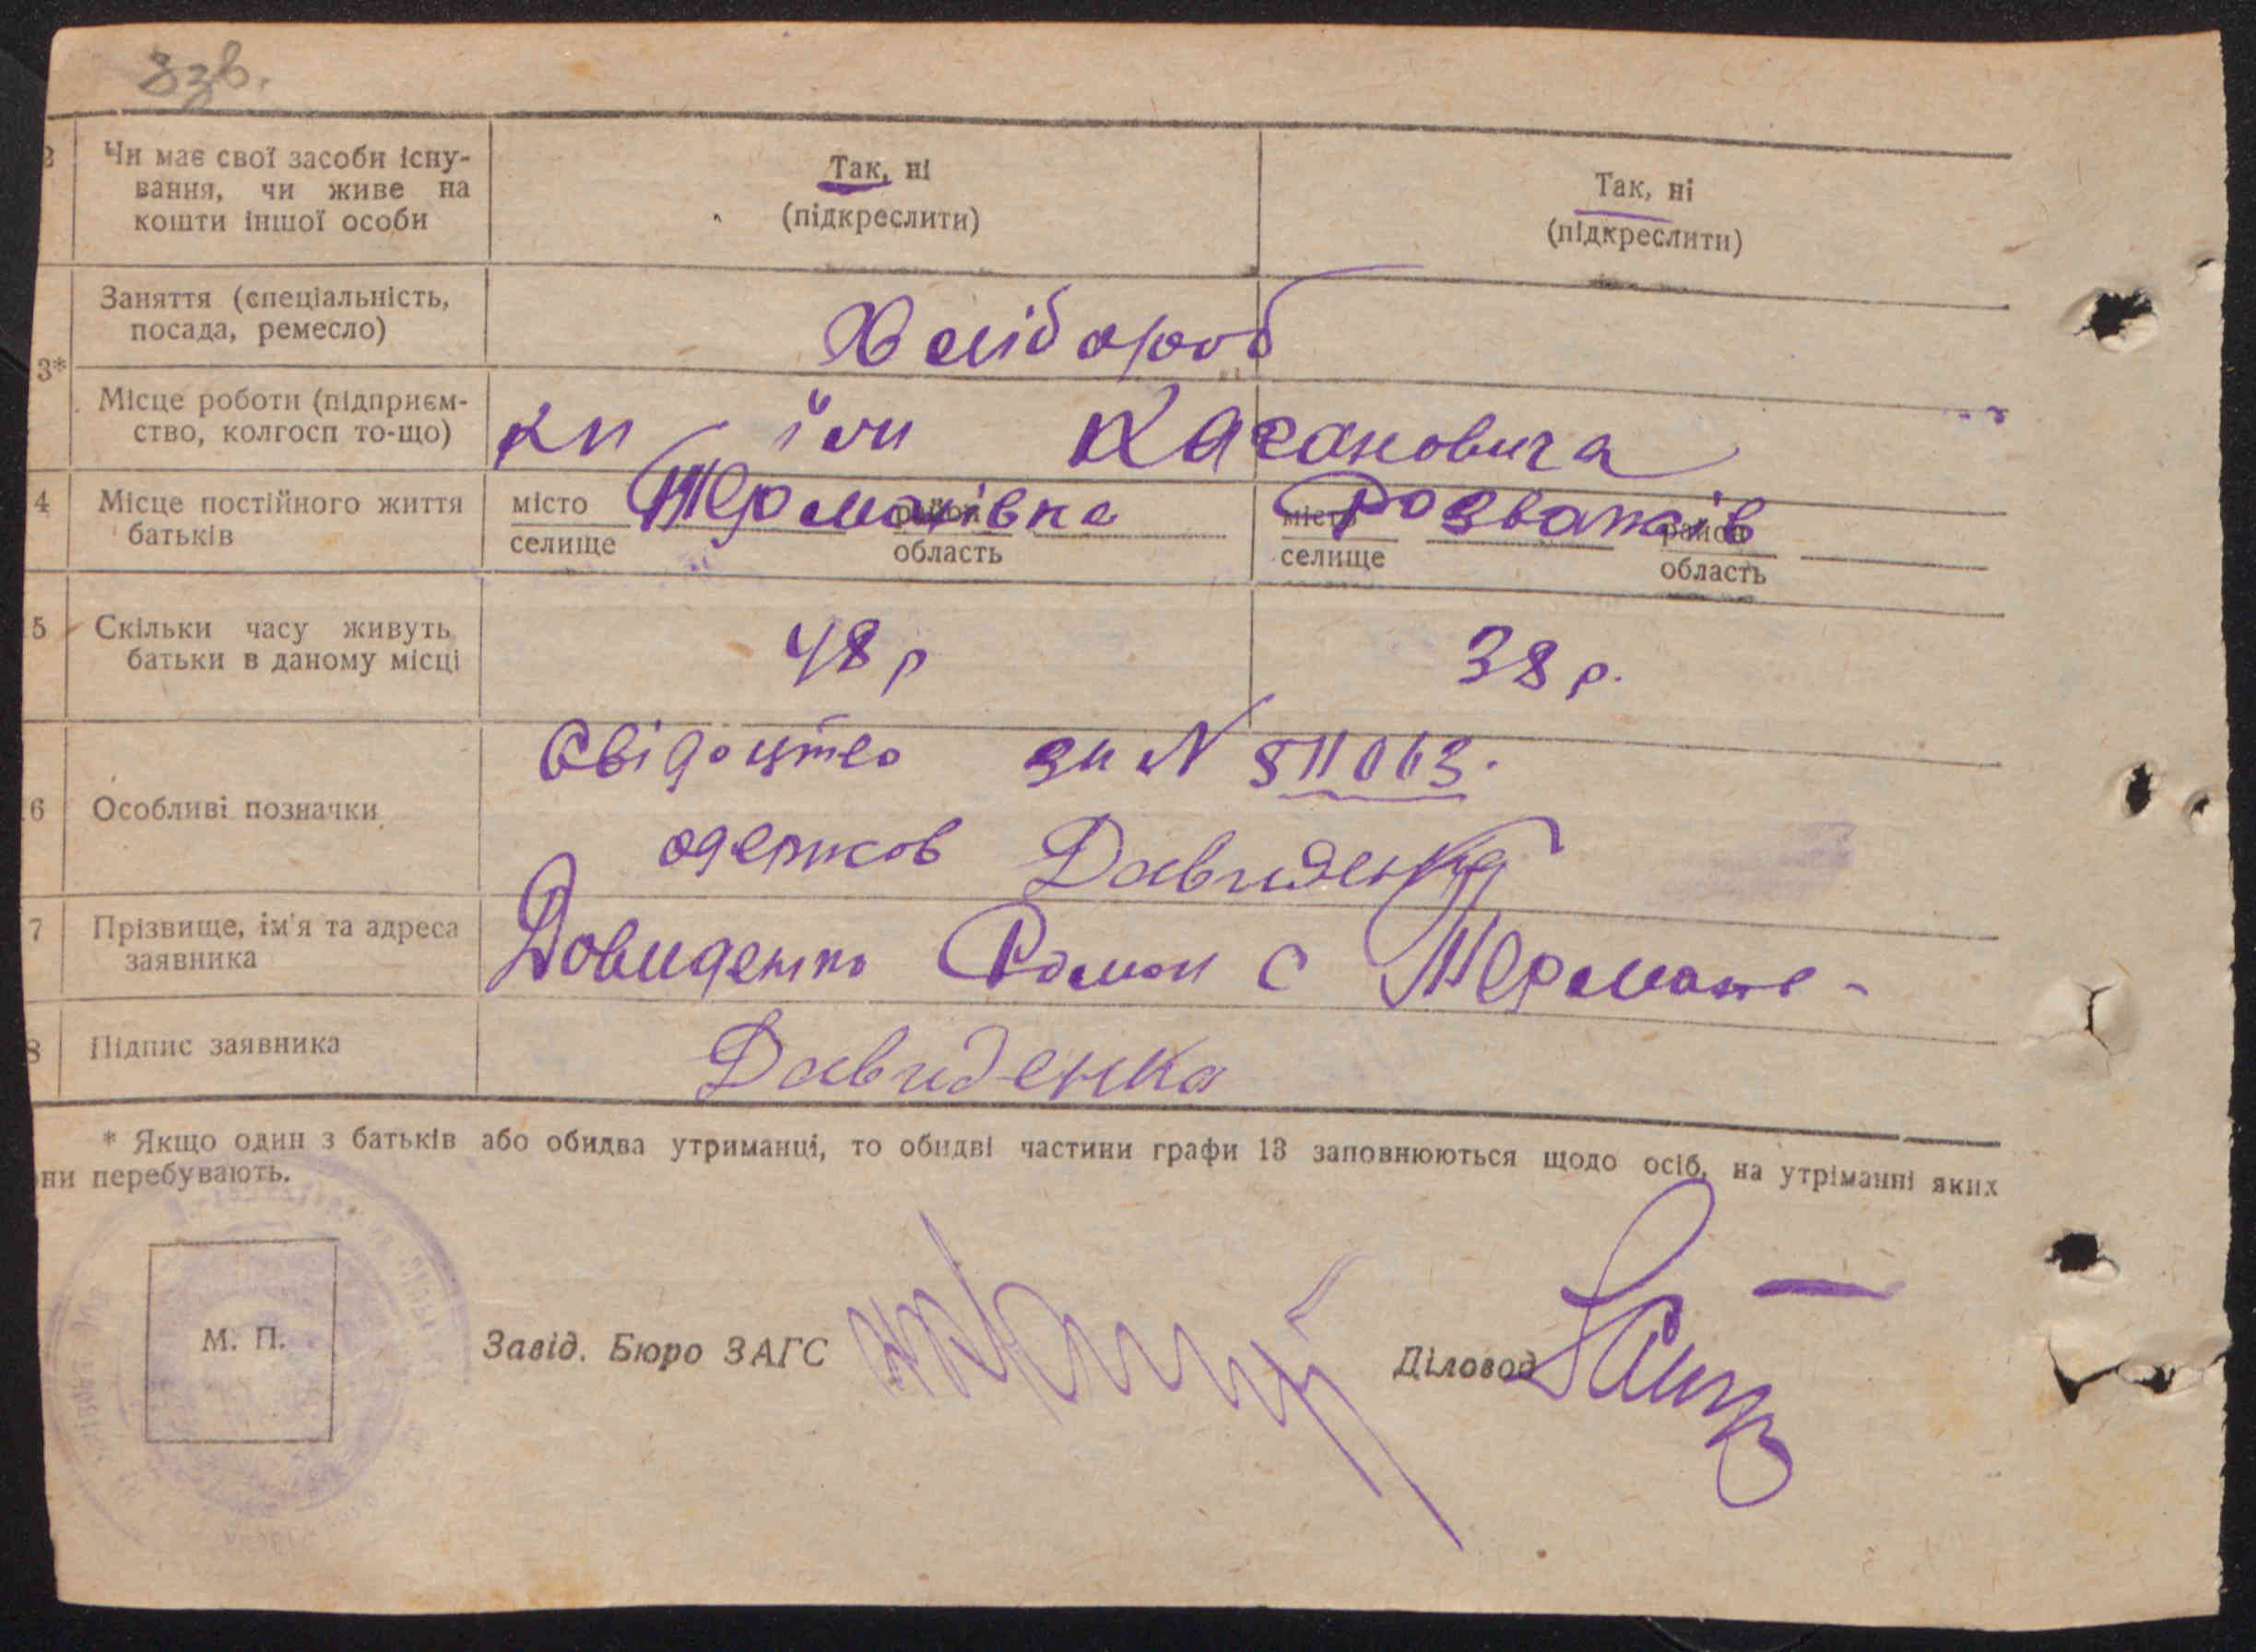 33в.
2 Чи має свої засоби існу-
вання, чи живе на
кошти іншої особи
Так, ні
(підкреслити)
Так, ні
(підкреслити)
3*
Заняття (спеціальність,
посада, ремесло)
Хлібороб
Місце роботи (підприєм-
ство, колгосп то-що)
кп ім Кагановича
4 Місце постійного життя
батьків
місто
селище
Термахівка
район
область
місто
селище
Розважів
район
область
5 Скільки часу живуть
батьки в даному місці
48 р
38 р.
6 Особливі позначки
Свідоцтво за N 511063.
одержав Давиденка
7 Прізвище, ім'я та адреса
заявника
Довиденко Роман с Термахі-
8 Підпис заявника
Давиденка
* Якщо один з батьків або обидва утриманці, то обидві частини графи 13 заповнюються щодо осіб, на утріманні яких
ни перебувають.
М. П.
Завід. Бюро ЗАГС
Діловод